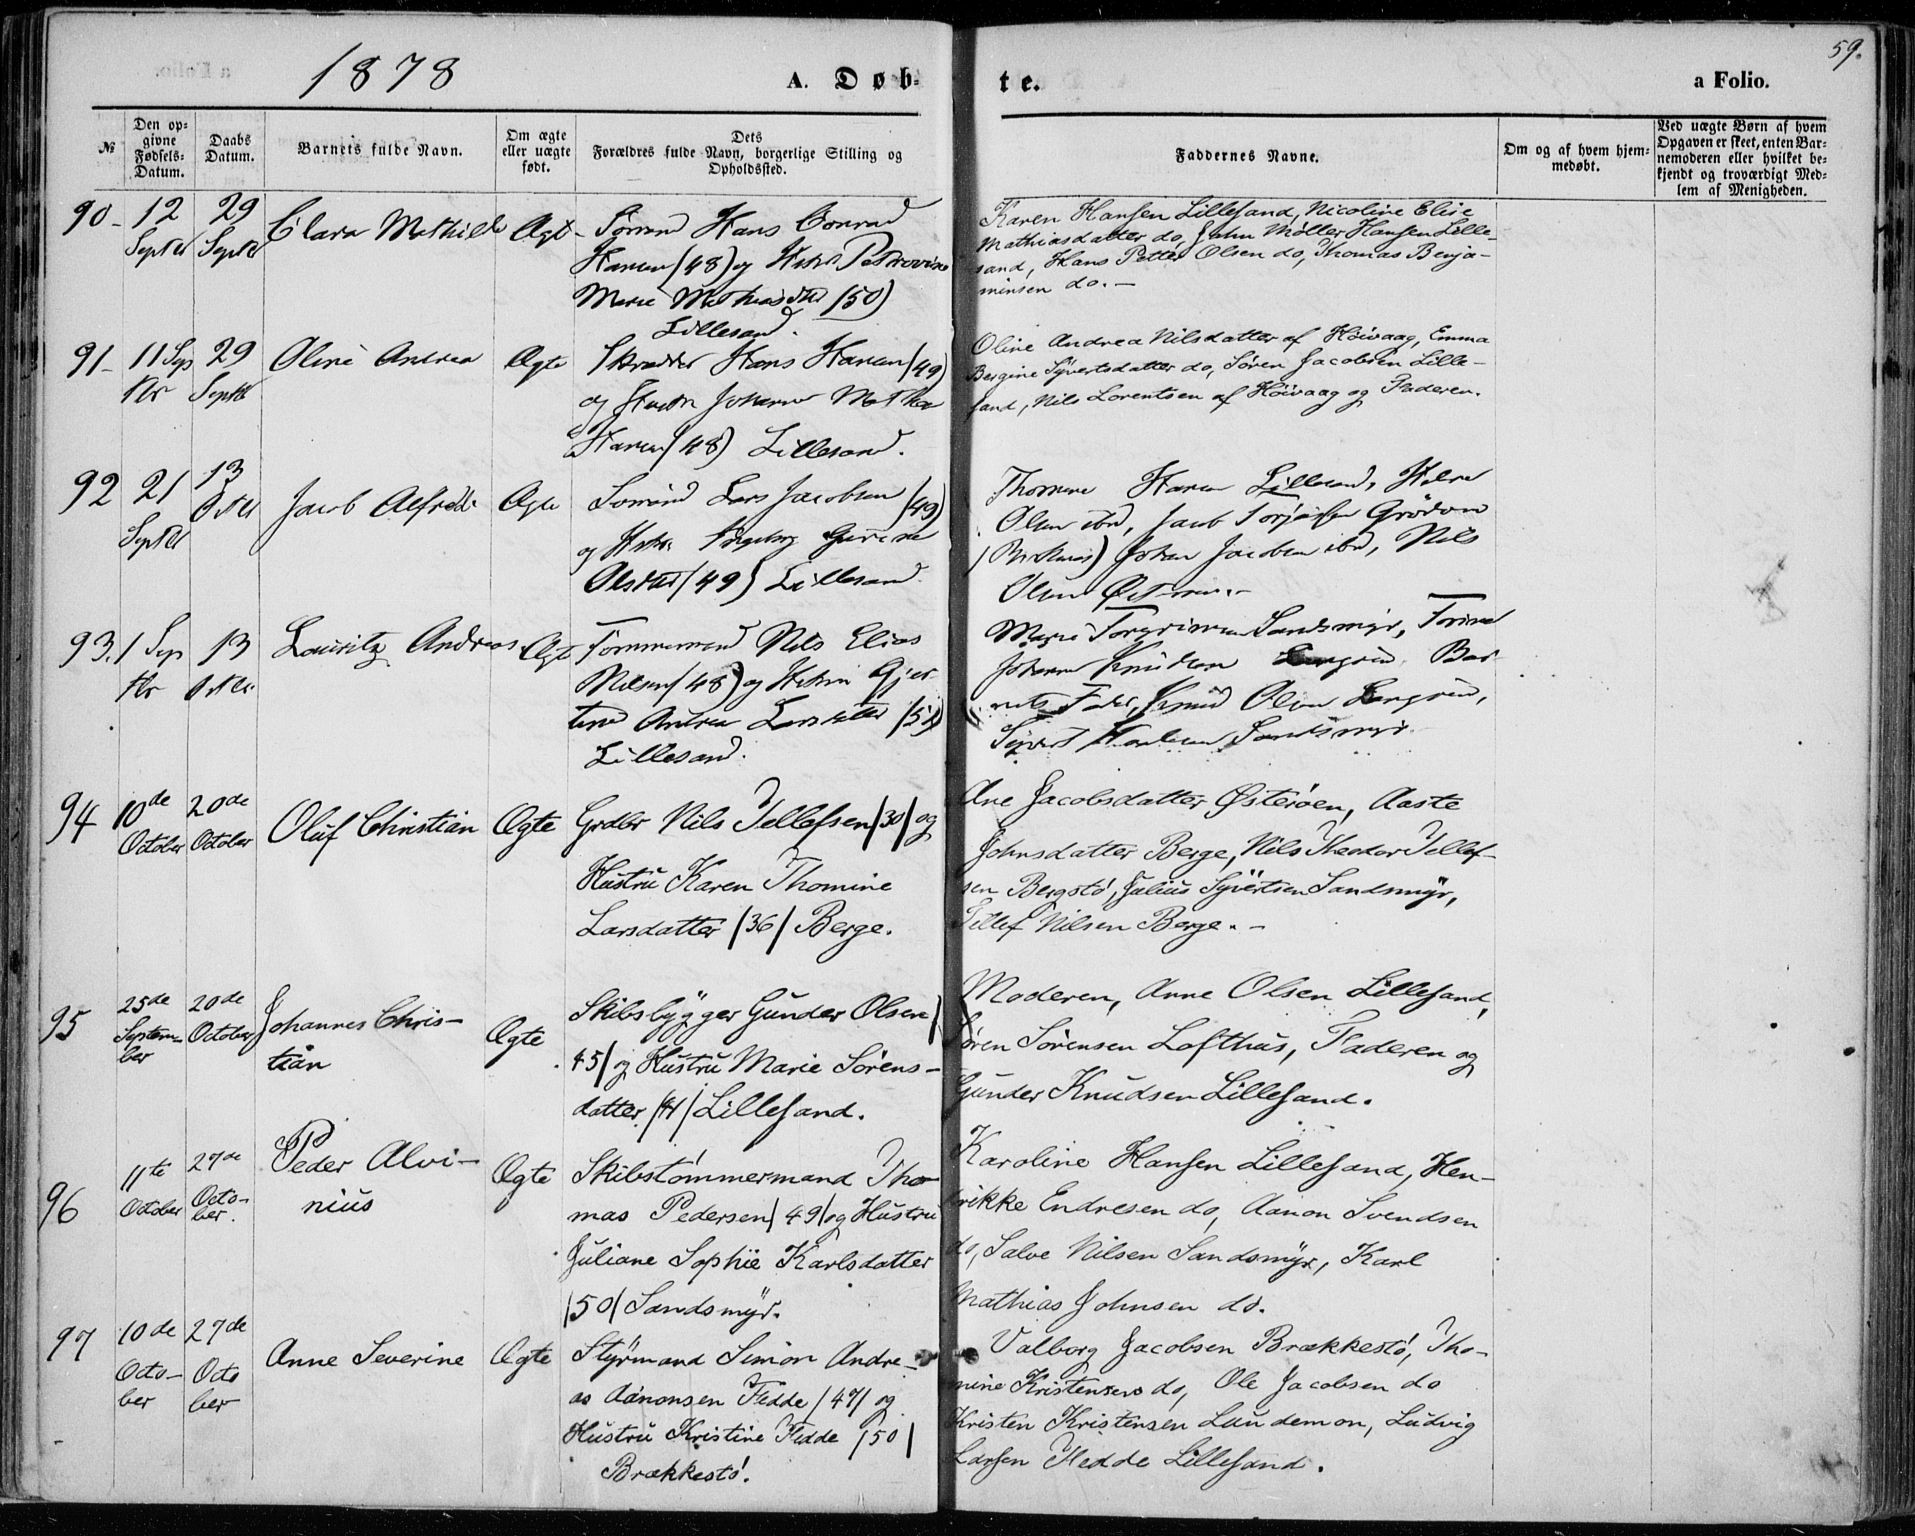 59.
1878
A. Døb-
te.
a Folio.
№
Den op-
givne
Fødsels-
Datum.
Daabs
Datum.
Barnets fulde Navn.
Om ægte
eller uægte
født.
Dets
Forældres fulde Navn, borgerlige Stilling og
Opholdssted.
Faddernes Navne.
Om og af hvem hjem-
medøbt.
Ved uægte Børn af hvem
Opgaven er skeet, enten Bar-
nemoderen eller hvilket be-
kjendt og troværdigt Med-
lem af Menigheden.
90 12 Septbr 29 Septbr Clara Mathilde Ægte
Hans Conrad
Hansen (48) og
Marie Mathiasdtr (50)
Lillesand.
Karen Hansen Lillesand, Nicoline Elise
Mathiasdatter do, John Møller Hansen Lille-
sand, Hans Petter Olsen do, Thomas Benja-
minsen do. —
91 11 Sep tbr 29 Septbr Oline Andrea Ægte
Skrædder Hans Hansen (49)
og Johanne
Hansen (48) Lillesand.
Oline Andrea Nilsdatter af Høivaag, Emma
Bergine Syvertsdatter do, Søren Jacobsen Lille-
sand, Nils Lorentsen af Høivaag og Faderen.
92 21 Septbr 13 Octbr Jacob Alfred Ægte
Lars Jacobsen (49)
og Ingeborg
Olsdtter (49) Lillesand
Lillesand,
Olsen ibd, Jacob
Johan Jacobsen ibd, Nils
Olsen
93. 1 Sep tbr 13 Octbr Lauritz Andreas Ægte
Tømmermand Nils Elias
Nilsen (48) og Gjer-
tine Andrea Larsdatter
Lillesand.
Marie Sandsmyr,
Johanne Knudsen Bar-
nets Fader, Knud Olsen
Syvert Sandsmyr
94 10de October 20de October Oluf Christian Ægte
Grdbr Nils Tellefsen /30/ og
Hustru Karen Thomine
Larsdatter /36/ Berge.
Ane Jacobsdatter Østerøen, Aaste
Johnsdatter Berge, Nils Theodor Tellef-
sen Bergstø, Julius Syvertsen Sandsmyr,
Tellef Nilsen Berge. —
95 25de Septem- ber 20de October Johannes Chris-
tian Ægte
Skibsbygger Gunder Olsen /
45/ og Hustru Marie Sørens-
datter /41/ Lillesand.
Moderen, Anne Olsen Lillesand,
Søren Sørensen Lofthus, Faderen og
Gunder Knudsen Lillesand.
96 11te October 27de Octo- ber. Peder Alvi-
nius Ægte
Skibstømmermand Tho-
mas Pedersen /49/ og Hustru
Juliane Sophie Karlsdatter
/50/ Sandsmyr.
Karoline Hansen Lillesand, Hen-
rikke Endresen do, Aanon Svendsen
do, Salve Nilsen Sandsmyr, Karl
Mathias Johnsen do.
97 10de Octo- ber 27de Octo ber Anne Severine Ægte
Styrmand Simon Andre-
as Aanonsen Fedde /47/ og
Hustru Kristine Fedde /50/
Brækkestø.
Valborg Jacobsen Brækkestø, Tho-
mine Kristensen do, Ole Jacobsen do
Kristen Kristensen Laudemon, Ludvig
Larsen Fedde Lillesand.